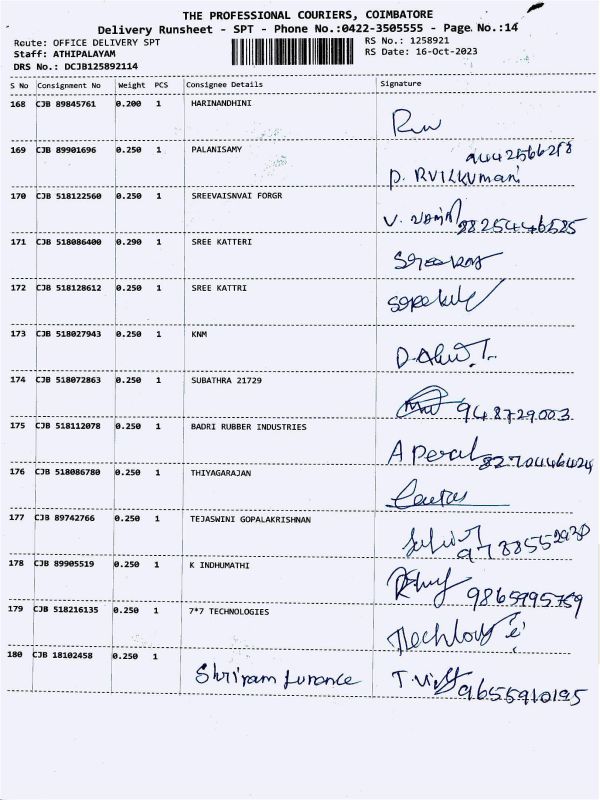 THE PROFESSIONAL COURIERS, COIMBATORE
Delivery Runsheet - SPT - Phone No.:0422-3505555 - Page No.:14
Route: OFFICE DELIVERY SPT RS No.: 1258921
Staff: ATHIPALAYAM RS Date: 16-Oct-2023
DRS No.: DCJB125892114
S No Consignment No Weight PCS Consignee Details Signature
168 CJB 89845761 0.200 1 HARINANDHINI
169 CJB 89901696 0.250 1 PALANISAMY
170 CJB 518122560 0.250 1 SREEVAISNVAI FORGR
171 CJB 518086400 0.290 1 SREE KATTERI
172 CJB 518128612 0.250 1 SREE KATTRI
173 CJB 518027943 0.250 1 KNM
174 CJB 518072863 0.250 1 SUBATHRA 21729
948729003
175 CJB 518112078 0.250 1 BADRI RUBBER INDUSTRIES
176 CJB 518086780 0.250 1 THIYAGARAJAN
177 CJB 89742766 0.250 1 TEJASWINI GOPALAKRISHNAN
178 CJB 89905519 0.250 1 K INDHUMATHI
9865995759
179 CJB 518216135 0.250 1 7*7 TECHNOLOGIES
180 CJB 18102458 0.250 1
Shriram 9655910195